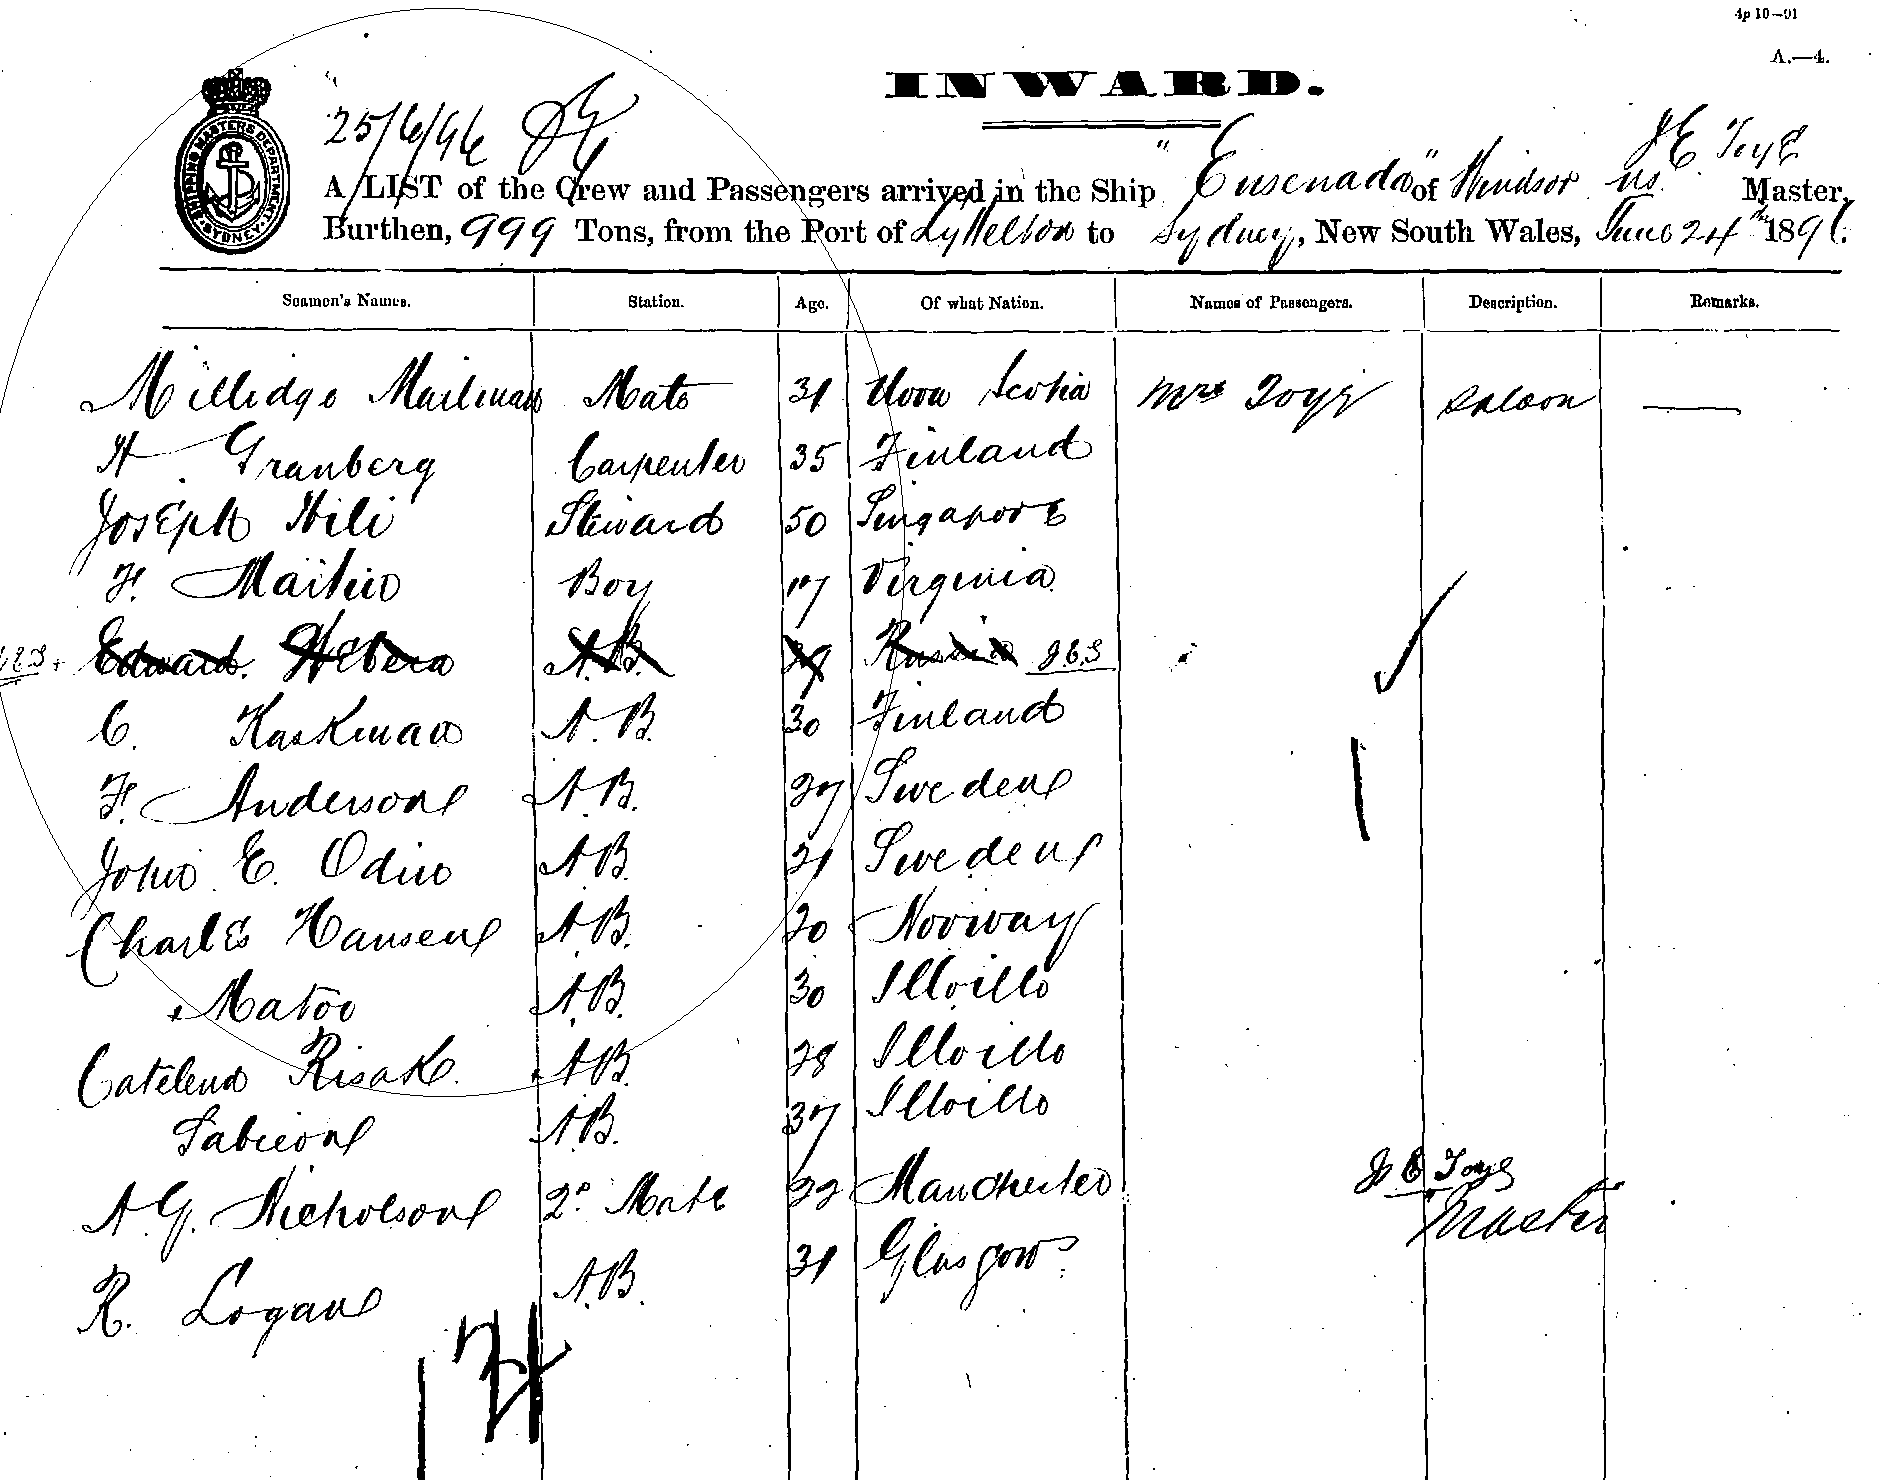 4p 10—91
A.—4.
INWARD.
SHIPPING MASTERS DEPARTMENT SYDNEY
25/6/96
J E Toye
A LIST of the Crew and Passengers arrived in the Ship "Ensenada" of Windsor NS. Master,
Burthen, 999 Tons, from the Port of Lyttelton to Sydney, New South Wales, June 24th 1896.
Seamen's Names. Station. Age. Of what Nation. Names of Passengers. Description. Remarks.
Milledge Mailman Mate 31 Nova Scotia Mrs Toye Saloon —
H Granberg Carpenter 35 Finland
Joseph Hili Steward 50 Singapore
F. Martin Boy 17 Virginia
Edward A.B. 29 Russia
C. Kaskman A.B. 30 Finland
F. Anderson A.B. 27 Sweden
John E. Odin A.B. 21 Sweden
Charles Hansen A.B. 20 Norway
Matoo A.B. 30 Illoillo
Risak A.B. 28 Illoillo
A.B. 37 Illoillo
A. G. Nicholson 2º Mate 22 Manchester
J E Toye
Master
R. Logan A.B. 31 Glasgow